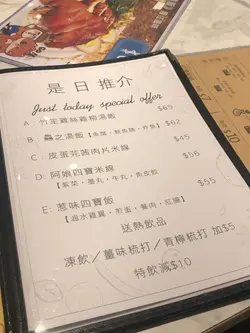 是日推介
Just today special offer
A: 竹笙雞絲雞粥湯飯 $65
B: 魚之湯飯【魚腐、鯇魚腩、炸魚】 $62
C: 皮蛋芫茜肉片米線 $45
D: 阿娘四寶米線 $56
【紫菜、墨丸、牛丸、魚皮餃
E: 惹味四寶飯 $55
【滷水雞翼、煎蛋、餐肉、紅腸】
送熱飲品
凍飲/薑味梳打/青檸梳打 加$5
特飲減$10